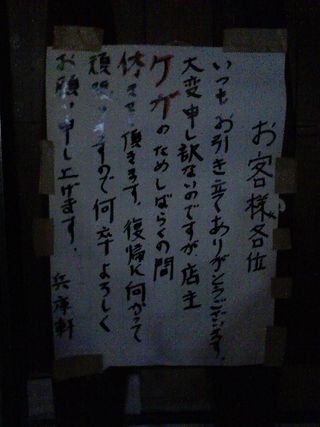 お客様各位
いつもお引き立てありがとうございます。
大変申し訳ないのですが店主
ケガのためしばらくの間
休ませて頂きます。復帰に向かって
頑張りますので何卒よろしく
お願い申し上げます。
兵庫軒